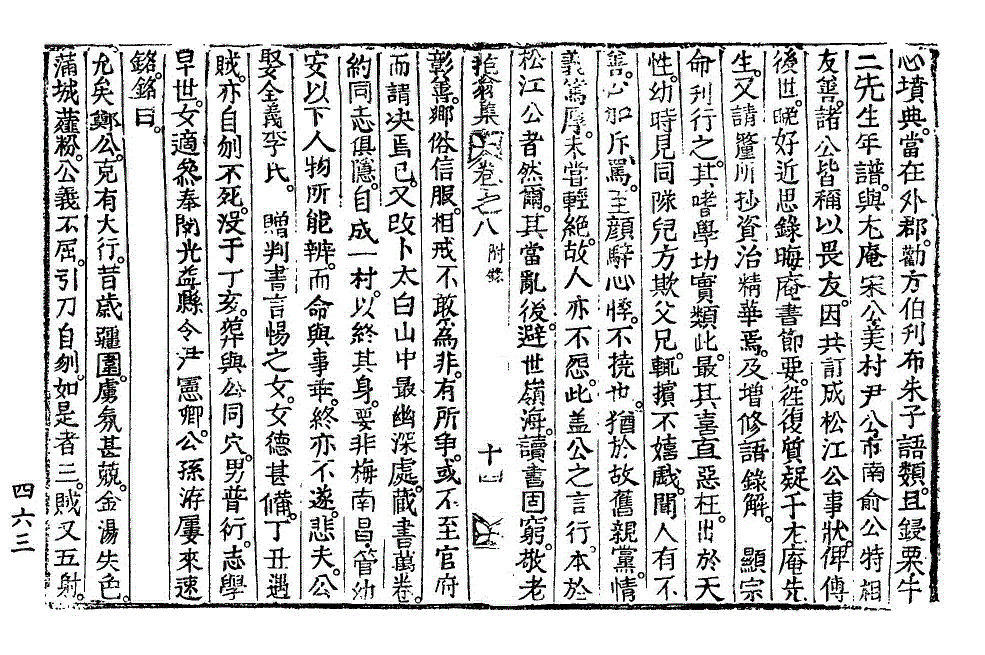 心墳典當在外郡勸方伯刊布朱子語類且鋟栗牛
二先生年譜與尤庵宋公美村尹公市南俞公特相
友善諸公皆稱以畏友因共訂成松江公事狀俾傳
後世晩好近思錄晦庵書節要徃復質疑于尤庵先
生又請釐所抄資治精華焉及增修語錄解　顯宗
命刊行之其嗜學功實類此最其喜直惡枉出於天
性幼時見同隊兒方欺父兄輒擯不嬉戱聞人有不
善必加斥罵至顔騂心悸不撓也猶於故舊親黨情
義篤厚未嘗輕絶故人亦不怨此盖公之言行本於
松江公者然爾其當亂後避世嶺海讀書固窮敬老
翁集　卷之八　附錄　十四
彰善鄕俗信服相戒不敢爲非有所争或不至官府
而請决焉已又改卜太白山中最幽深處藏書萬卷
約同志俱隱自成一村以終其身要非梅南昌管幼
安以下人物所能辨而命與事乖終亦不遂悲夫公
娶全義李氏　贈判書言惕之女女德甚備丁丑遇
賊亦自刎不死没于丁亥葬與公同穴男普衍志學
早世女適叅奉閔光益縣令尹憲卿公孫游屢來速
銘銘曰
允矣鄭公克有大行昔歲疆圉虜氛甚兢金湯失色
蒲城虀粉公義不屈引刀自刎如是者三賊又五射
四六三